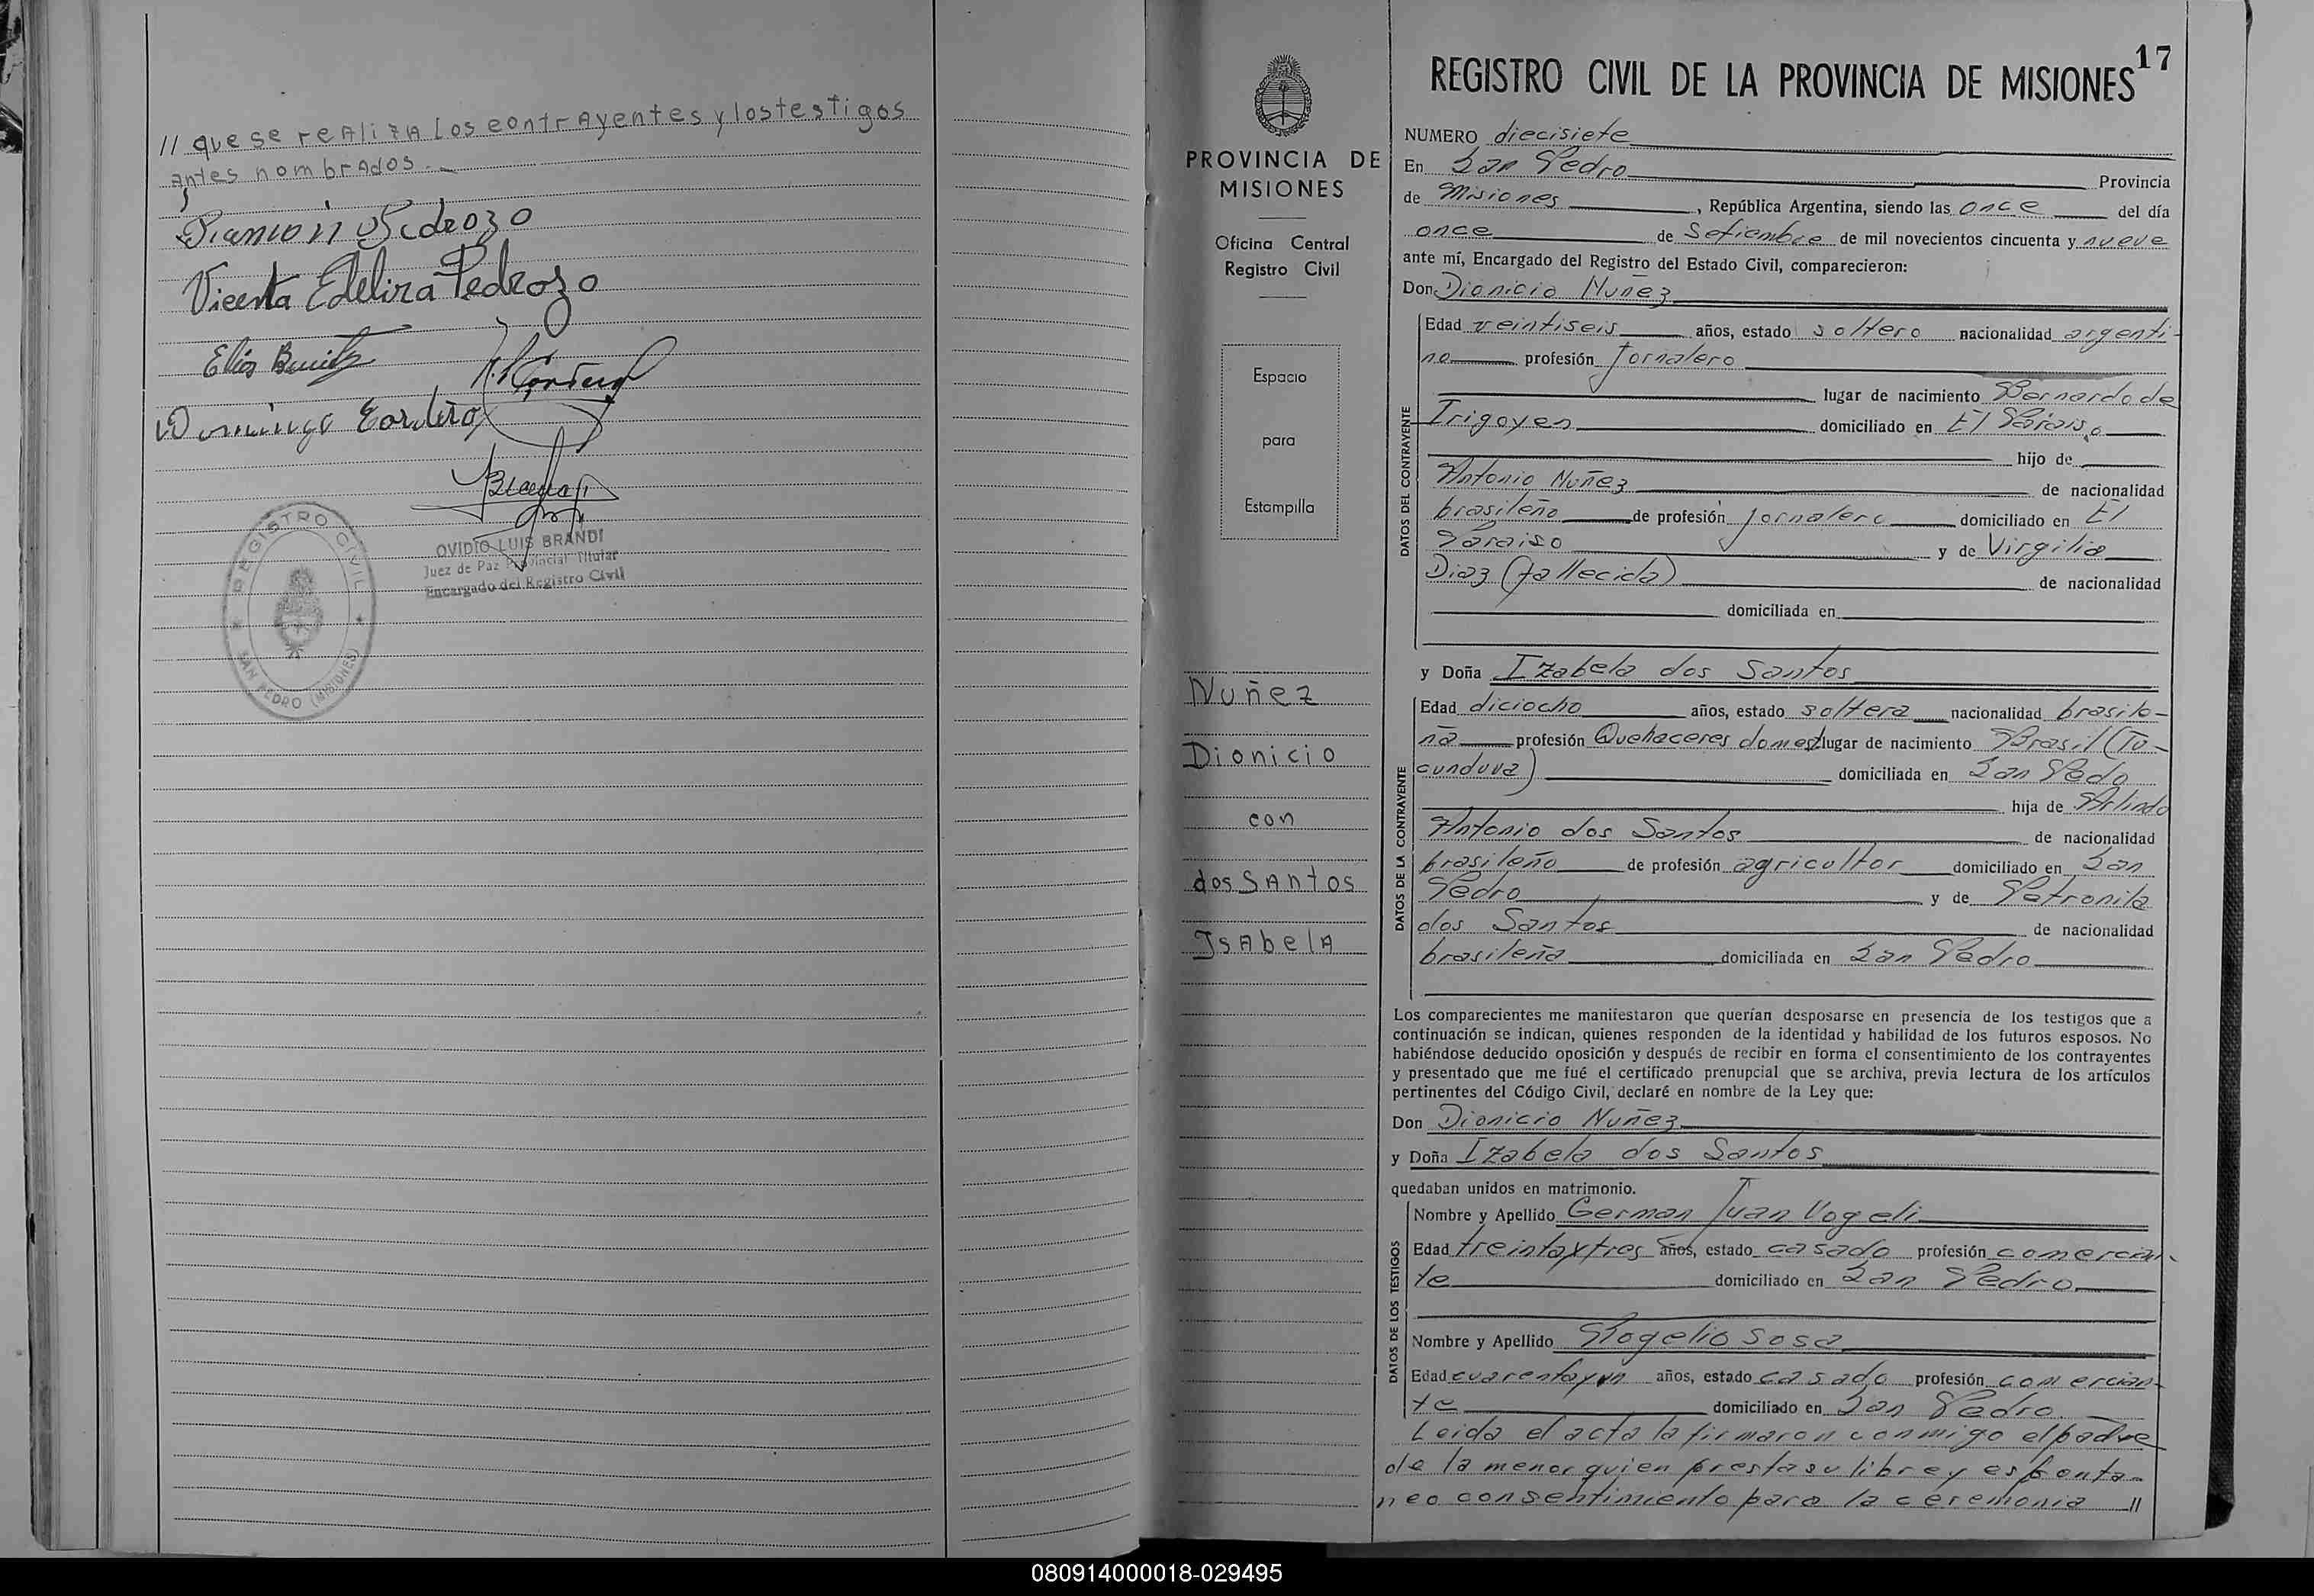 // que se reAlizA los contrAyentes y los testigos
antes nombrAdos.
Ramón Pedrozo
Vicenta Edelira Pedrozo
Elias Benitez
Domingo Cordero
REGISTRO CIVIL
SAN PEDRO (MISIONES)
OVIDIO LUIS BRANDI
Juez de Paz Provincial Titular
Encargado del Registro Civil
PROVINCIA DE
MISIONES
Oficina Central
Registro Civil
Espacio
para
Estampilla
Nuñez
Dionicio
con
dos SAntos
IsAbelA
17
REGISTRO CIVIL DE LA PROVINCIA DE MISIONES
NUMERO diecisiete
En San Pedro Provincia
de Misiones, República Argentina, siendo las once del día
once de Setiembre de mil novecientos cincuenta y nueve
ante mí, Encargado del Registro del Estado Civil, comparecieron:
Don Dionicio Nuñez
DATOS DEL CONTRAYENTE
Edad veintiseis años, estado soltero nacionalidad argenti-
no profesión Jornalero
lugar de nacimiento Bernardo de
Irigoyen domiciliado en El Paraiso
hijo de
Antonio Nuñez de nacionalidad
brasileño de profesión jornalero domiciliado en El
Paraiso y de Virgilia
Diaz (fallecida) de nacionalidad
domiciliada en
y Doña Izabela dos Santos
DATOS DE LA CONTRAYENTE
Edad diciocho años, estado soltera nacionalidad brasile-
ña profesión Quehaceres domest. lugar de nacimiento Brasil (Tu-
cunduva) domiciliada en San Pedo
hija de Arlindo
Antonio dos Santos de nacionalidad
brasileño de profesión agricultor domiciliado en San
Pedro y de Petronila
dos Santos de nacionalidad
brasileña domiciliada en San Pedro
Los comparecientes me manifestaron que querían desposarse en presencia de los testigos que a
continuación se indican, quienes responden de la identidad y habilidad de los futuros esposos. No
habiéndose deducido oposición y después de recibir en forma el consentimiento de los contrayentes
y presentado que me fué el certificado prenupcial que se archiva, previa lectura de los artículos
pertinentes del Código Civil, declaré en nombre de la Ley que:
Don Dionicio Nuñez
y Doña Izabela dos Santos
quedaban unidos en matrimonio.
DATOS DE LOS TESTIGOS
Nombre y Apellido German Juan Vogeli
Edad treintaytres años, estado casado profesión comercian-
te domiciliado en San Pedro
Nombre y Apellido Rogelio Sosa
Edad cuarentayun años, estado casado profesión comercian-
te domiciliado en San Pedro.
Leida el acta la firmaron conmigo el padre
de la menor quien presta su libre y esponta-
neo consentimiento para la ceremonia //
080914000018-029495